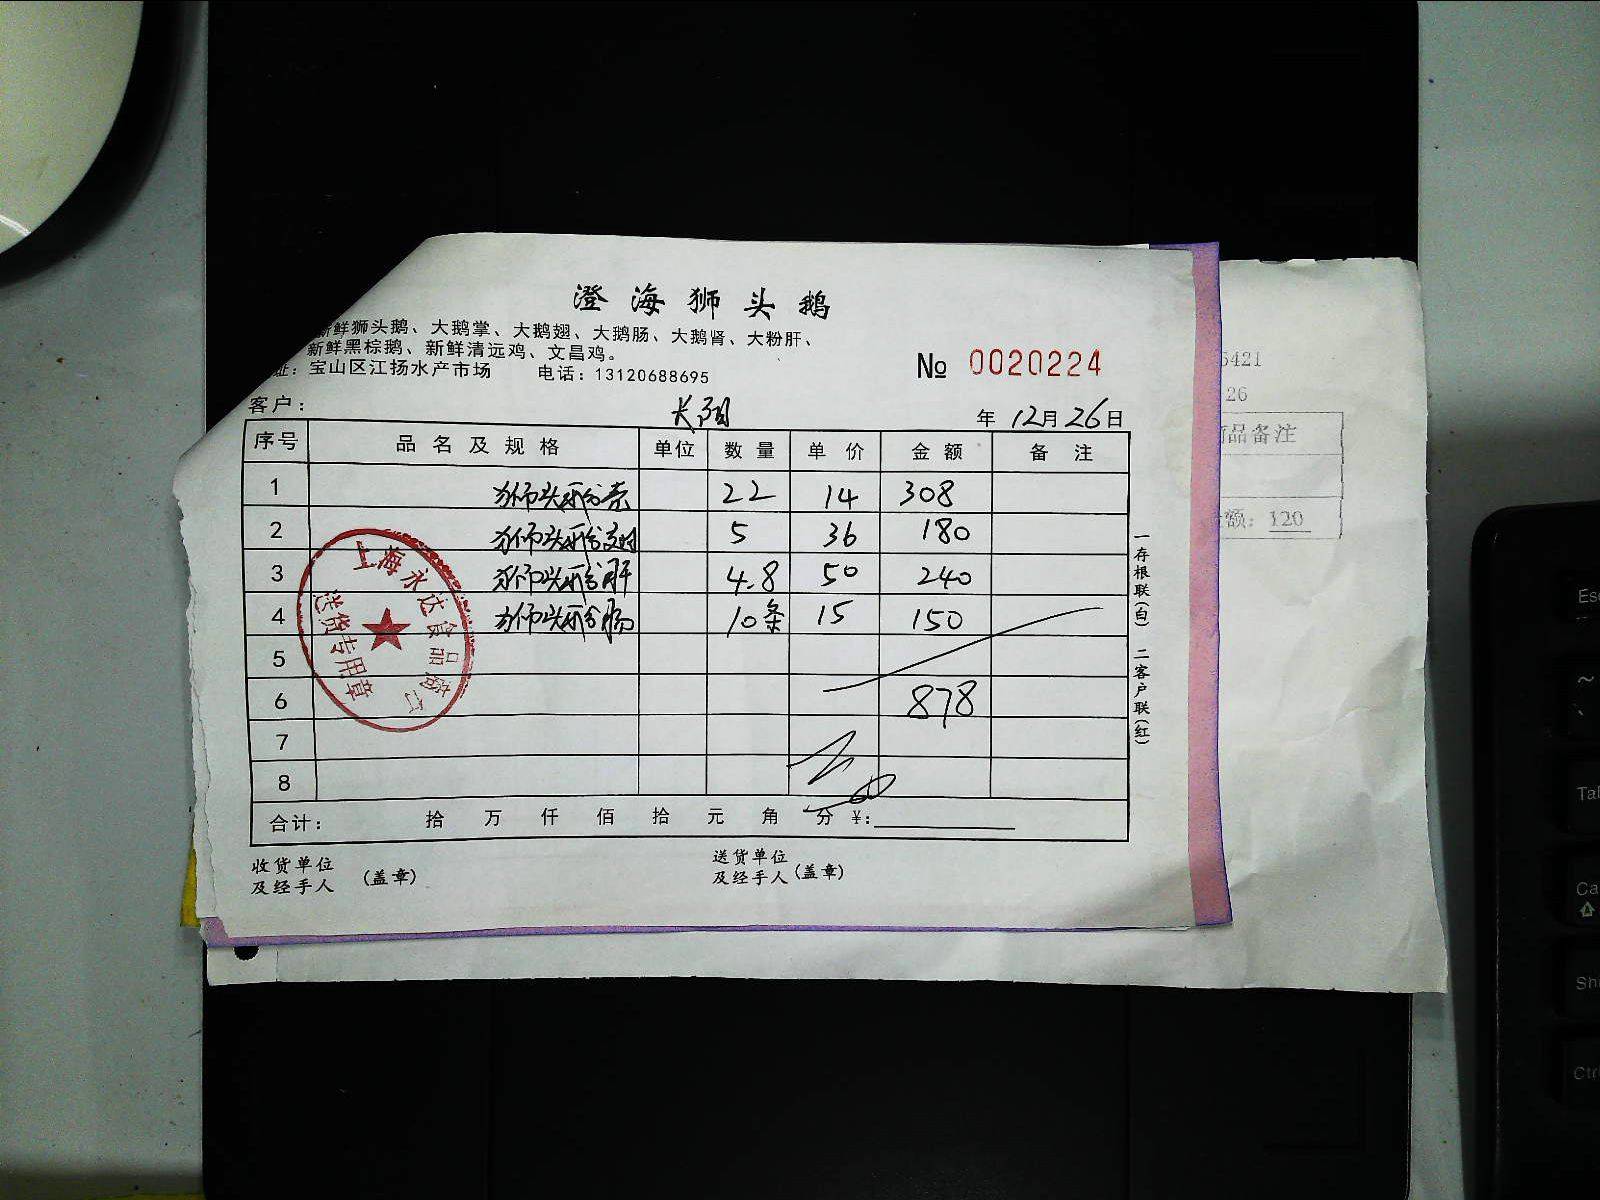 澄海狮头鹅
新鲜狮头鹅、大鹅掌、大鹅翅、大鹅肠、大鹅肾、大粉肝、
新鲜黑棕鹅、新鲜清远鸡、文昌鸡。
址：宝山区江扬水产市场 电话：13120688695
№ 0020224
客户： 长阳 年 12月26日
序号 品名及规格 单位 数量 单价 金额 备注
1 狮头鹅壳 22 14 308
2 狮头鹅翅 5 36 180
3 狮头鹅肝 4.8 50 240
4 狮头鹅肠 10条 15 150
5
6 878
7
8
合计： 拾 万 仟 佰 拾 元 角 分 ¥：
收货单位
及经手人 (盖章)
送货单位
及经手人 (盖章)
一存根联(白) 二客户联(红)
上海永达食品
送货专用章
5421
26
品备注
额：120
Esc
~
Tab
Ca
Sh
Ctr